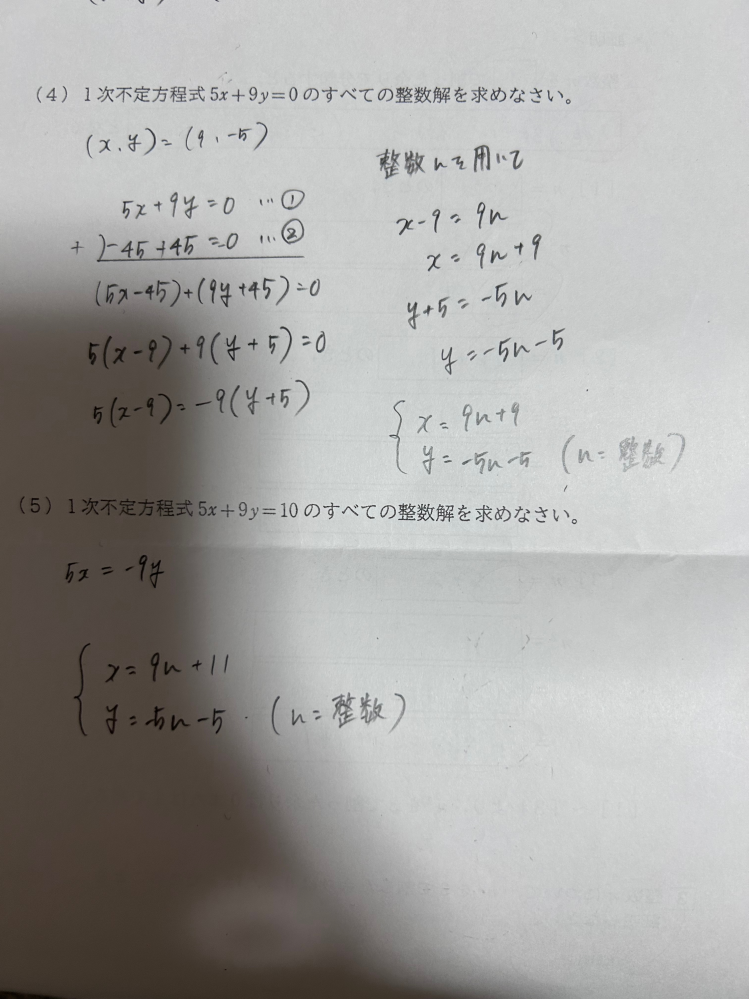 (4) 1次不定方程式 5x+9y=0 のすべての整数解を求めなさい。
(x、y)=(9、-5)
5x+9y=0 …①
+ )-45+45=0 …②
(5x-45)+(9y+45)=0
5(x-9)+9(y+5)=0
5(x-9)=-9(y+5)
整数nを用いて
x-9=9n
x=9n+9
y+5=-5n
y=-5n-5
x=9n+9
y=-5n-5 (n=整数)
(5) 1次不定方程式 5x+9y=10 のすべての整数解を求めなさい。
5x=-9y
x=9n+11
y=-5n-5. (n=整数)